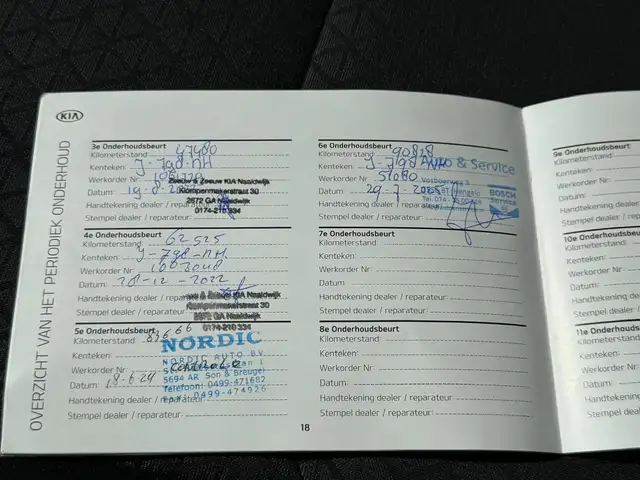 KIA
OVERZICHT VAN HET PERIODIEK ONDERHOUD
3e Onderhoudsbeurt
Kilometerstand 47480
Kenteken: J-798-NH
Werkorder Nr
Zeeuw & Zeeuw KIA Naaldwijk
Datum: 19-8-
Klompenmakerstraat 30
2672 GA Naaldwijk
Handtekening dealer / reparateur:
0174-210 334
Stempel dealer / reparateur:
4e Onderhoudsbeurt
Kilometerstand 62525
Kenteken: J-798-NH
Werkorder Nr
Datum: 20-12-2022
Handtekening dealer / reparateur
Zeeuw & Zeeuw KIA Naaldwijk
Klompenmakerstraat 30
Stempel dealer / reparateur:
2672 GA Naaldwijk
0174-210 334
5e Onderhoudsbeurt
Kilometerstand
NORDIC
Kenteken:
NORDIC AUTO B.V.
Werkorder Nr
5694 AR Son & Breugel
Datum: 18-6-24
Telefoon: 0499-471682
Handtekening dealer / reparateur:
Fax: 0499-474926
Stempel dealer / reparateur:
6e Onderhoudsbeurt
Kilometerstand 90828
Kenteken: J-798-NH
Auto & Service
Werkorder Nr: 51080
Datum 29-7-2025
Hengelo
BOSCH
Service
Handtekening dealer / reparateur:
Stempel dealer / reparateur:
7e Onderhoudsbeurt
Kilometerstand
Kenteken:
Werkorder Nr:
Datum:
Handtekening dealer / reparateur:
Stempel dealer / reparateur:
8e Onderhoudsbeurt
Kilometerstand
Kenteken:
Werkorder Nr:
Datum:
Handtekening dealer / reparateur:
Stempel dealer / reparateur:
18
9e Onderhoudsbeurt
Kilometerstand
Kenteken:
Werkorder Nr:
Datum:
Handtekening dealer
Stempel dealer / rep
10e Onderhoudsbeu
Kilometerstand
Kenteken:
Werkorder Nr:
Datum:
Handtekening deal
Stempel dealer / re
11e Onderhoudsbe
Kilometerstand
Kenteken:
Werkorder Nr:
Datum:
Handtekening dea
Stempel dealer